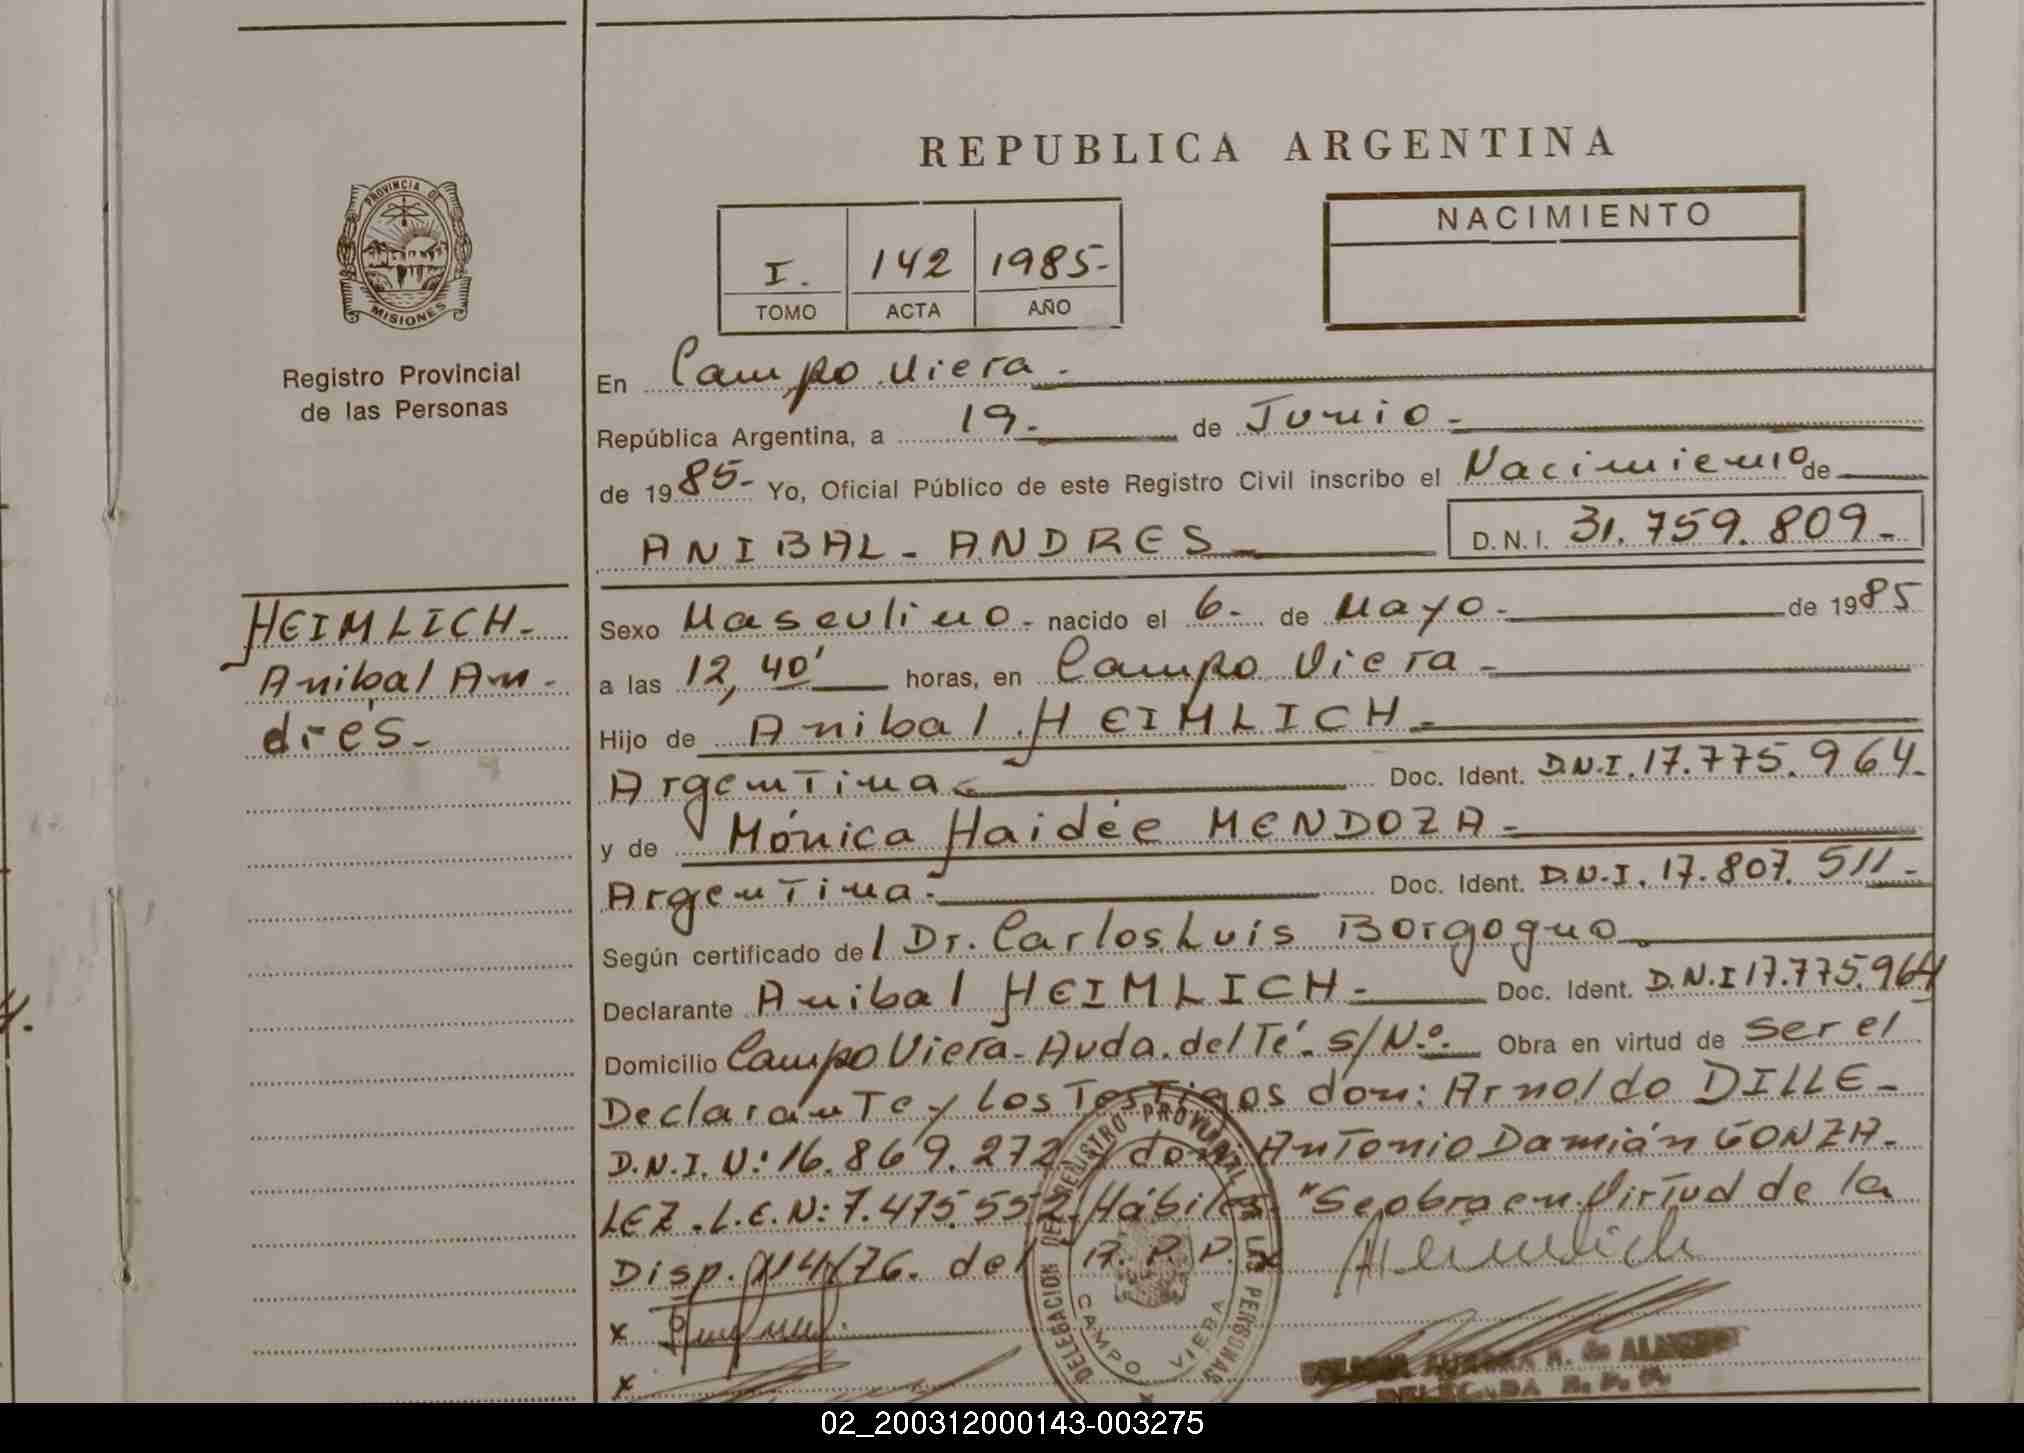 REPUBLICA ARGENTINA
PROVINCIA DE
MISIONES
Registro Provincial
de las Personas
I.
142
1985-
TOMO
ACTA
AÑO
NACIMIENTO
En Campo Viera.-
República Argentina, a 19.- de Junio.-
de 1985.- Yo, Oficial Público de este Registro Civil inscribo el Nacimiento de
ANIBAL - ANDRES
D.N.I. 31.759.809.-
HEIMLICH.-
Anibal An-
drés.-
Sexo Masculino.- nacido el 6.- de Mayo.- de 1985
a las 12,40' horas, en Campo Viera.-
Hijo de Anibal HEIMLICH.-
Argentina Doc. Ident. D.N.I. 17.775.964.-
y de Mónica Haidée MENDOZA.-
Argentina.- Doc. Ident. D.N.I. 17.807.511.-
Según certificado de l Dr. Carlos Luis Borgogno.
Declarante Anibal HEIMLICH.- Doc. Ident. D.N.I 17.775.964
Domicilio Campo Viera.- Avda. del Té.- S/N.º Obra en virtud de ser el
Declarante y los Testigos don: Arnoldo DILLE-
D.N.I. N: 16.869.272 y don: Antonio Damián GONZA-
LEZ. L.E.N: 7.475.552. Hábiles. "Se obra en Virtud de la
Disp. del R.P.P.
Heimlich
x
x
DELEGACION DEL REGISTRO PROVINCIAL DE LAS PERSONAS
CAMPO VIERA
02_200312000143-003275